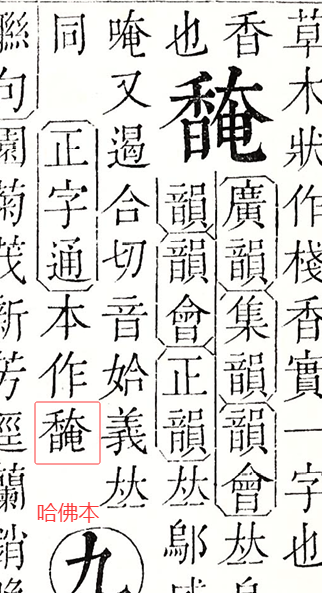 草木狀作棧香實一字也
香
也
馣
廣韻集韻韻會𠀤
韻韻會正韻𠀤鄔
唵又遏合切音姶義𠀤
同正字通本作馣
哈佛本
九
聮句園菊茂新芳徑蘭銷